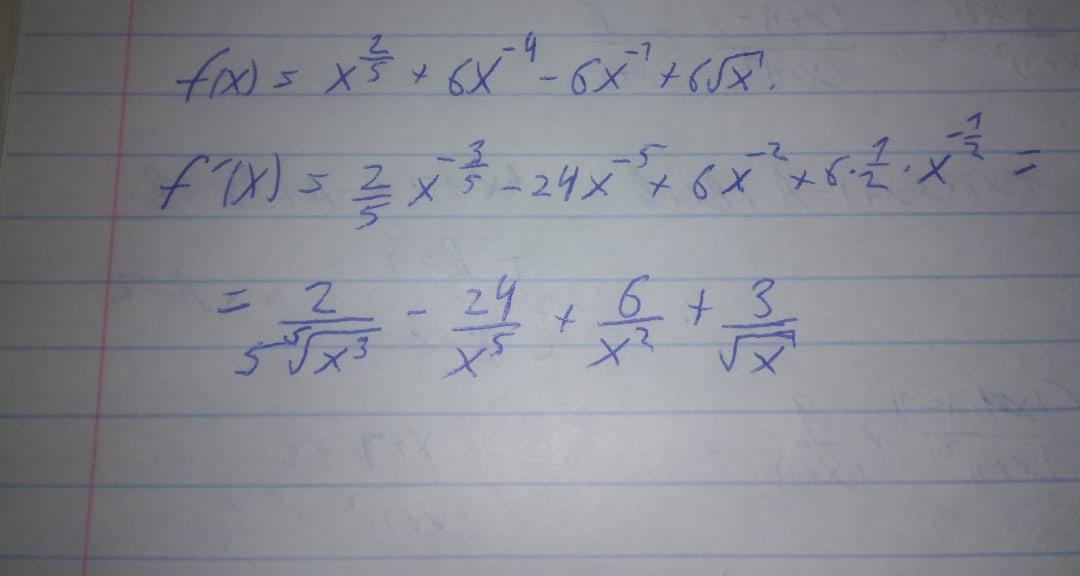 f(x) = x^(2/5) + 6x^(-4) - 6x^(-1) + 6√x.
f'(x) = 2/5 x^(-3/5) - 24x^(-5) + 6x^(-2) + 6·1/2·x^(-1/2) =
= 2/(5 ⁵√(x³)) - 24/x⁵ + 6/x² + 3/√x